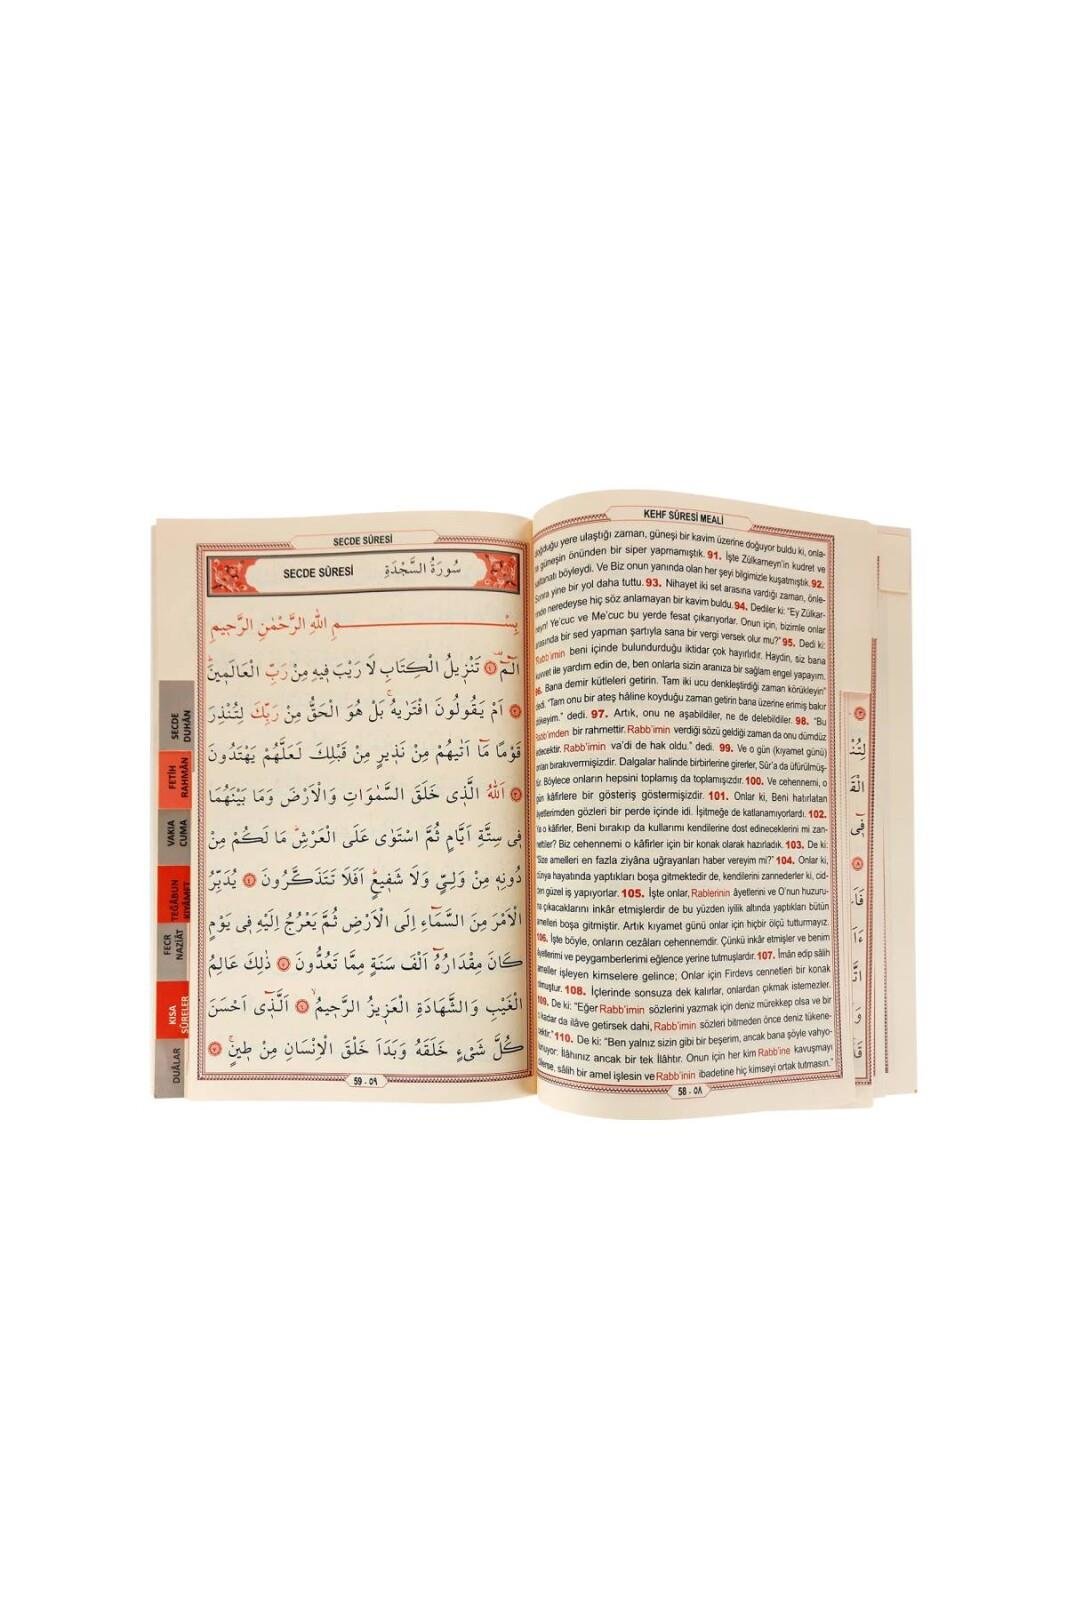 KEHF SÛRESİ MEALİ
doğduğu yere ulaştığı zaman, güneşi bir kavim üzerine doğuyor buldu ki, onla-
güneşin önünden bir siper yapmamıştık. 91. İşte Zülkarneyn'in kudret ve
saltanatı böyleydi. Ve Biz onun yanında olan her şeyi bilgimizle kuşatmıştık. 92.
Sonra yine bir yol daha tuttu. 93. Nihayet iki set arasına vardığı zaman, önle-
rinde neredeyse hiç söz anlamayan bir kavim buldu. 94. Dediler ki: "Ey Zülkar-
neyn! Ye'cuc ve Me'cuc bu yerde fesat çıkarıyorlar. Onun için, bizimle onlar
arasında bir sed yapman şartıyla sana bir vergi versek olur mu?" 95. Dedi ki:
"Rabb'imin beni içinde bulundurduğu iktidar çok hayırlıdır. Haydin, siz bana
kuvvet ile yardım edin de, ben onlarla sizin aranıza bir sağlam engel yapayım.
96. Bana demir kütleleri getirin. Tam iki ucu denkleştirdiği zaman körükleyin"
dedi. "Tam onu bir ateş hâline koyduğu zaman getirin bana üzerine erimiş bakır
dökeyim." dedi. 97. Artık, onu ne aşabildiler, ne de delebildiler. 98. "Bu
Rabb'imden bir rahmettir. Rabb'imin verdiği sözü geldiği zaman da onu dümdüz
edecektir. Rabb'imin va'di de hak oldu." dedi. 99. Ve o gün (kıyamet günü)
onları bırakıvermişizdir. Dalgalar halinde birbirlerine girerler, Sûr'a da üfürülmüş-
tür. Böylece onların hepsini toplamış da toplamışızdır. 100. Ve cehennemi, o
gün kâfirlere bir gösteriş göstermişizdir. 101. Onlar ki, Beni hatırlatan
âyetlerimden gözleri bir perde içinde idi. İşitmeğe de katlanamıyorlardı. 102.
Ya o kâfirler, Beni bırakıp da kullarımı kendilerine dost edineceklerini mi zan-
nettiler? Biz cehennemi o kâfirler için bir konak olarak hazırladık. 103. De ki:
"Size amelleri en fazla ziyâna uğrayanları haber vereyim mi?" 104. Onlar ki,
dünya hayatında yaptıkları boşa gitmektedir de, kendilerini zannederler ki, cid-
den güzel iş yapıyorlar. 105. İşte onlar, Rablerinin âyetlerini ve O'nun huzuru-
na çıkacaklarını inkâr etmişlerdir de bu yüzden iyilik altında yaptıkları bütün
amelleri boşa gitmiştir. Artık kıyamet günü onlar için hiçbir ölçü tutturmayız.
106. İşte böyle, onların cezâları cehennemdir. Çünkü inkâr etmişler ve benim
âyetlerimi ve peygamberlerimi eğlence yerine tutmuşlardır. 107. İmân edip sâlih
ameller işleyen kimselere gelince; Onlar için Firdevs cennetleri bir konak
olmuştur. 108. İçlerinde sonsuza dek kalırlar, onlardan çıkmak istemezler.
109. De ki: "Eğer Rabb'imin sözlerini yazmak için deniz mürekkep olsa ve bir
o kadar da ilâve getirsek dahi, Rabb'imin sözleri bitmeden önce deniz tükene-
cektir." 110. De ki: "Ben yalnız sizin gibi bir beşerim, ancak bana şöyle vahyo-
lunuyor: İlâhınız ancak bir tek İlâhtır. Onun için her kim Rabb'ine kavuşmayı
dilerse, sâlih bir amel işlesin ve Rabb'inin ibadetine hiç kimseyi ortak tutmasın."
58 - ٥٨
SECDE SÛRESİ
SECDE SÛRESİ سُورَةُ السَّجْدَةِ
بِسْمِ اللهِ الرَّحْمٰنِ الرَّحِيمِ
الٓمٓ ۝١ تَنْزِيلُ الْكِتَابِ لَا رَيْبَ فِيهِ مِنْ رَبِّ الْعَالَمِينَۜ
۝٢ اَمْ يَقُولُونَ افْتَرٰيهُۚ بَلْ هُوَ الْحَقُّ مِنْ رَبِّكَ لِتُنْذِرَ
قَوْمًا مَٓا اَتٰيهُمْ مِنْ نَذِيرٍ مِنْ قَبْلِكَ لَعَلَّهُمْ يَهْتَدُونَ
۝٣ اَللهُ الَّذِي خَلَقَ السَّمٰوَاتِ وَالْاَرْضَ وَمَا بَيْنَهُمَا
فِي سِتَّةِ اَيَّامٍ ثُمَّ اسْتَوٰى عَلَى الْعَرْشِۜ مَا لَكُمْ مِنْ
دُونِهِ مِنْ وَلِيٍّ وَلَا شَفِيعٍۜ اَفَلَا تَتَذَكَّرُونَ ۝٤ يُدَبِّرُ
الْاَمْرَ مِنَ السَّمَٓاءِ اِلَى الْاَرْضِ ثُمَّ يَعْرُجُ اِلَيْهِ فِي يَوْمٍ
كَانَ مِقْدَارُهُٓ اَلْفَ سَنَةٍ مِمَّا تَعُدُّونَ ۝٥ ذٰلِكَ عَالِمُ
الْغَيْبِ وَالشَّهَادَةِ الْعَزِيزُ الرَّحِيمُۙ ۝٦ اَلَّذِٓي اَحْسَنَ
كُلَّ شَيْءٍ خَلَقَهُ وَبَدَاَ خَلْقَ الْاِنْسَانِ مِنْ طِينٍۚ ۝٧
59 - ٥٩
SECDE
DUHÂN
FETİH
RAHMÂN
VAKIA
CUMA
TEĞÂBUN
KIYÂMET
FECR
NAZİÂT
KISA
SÛRELER
DUÂLAR